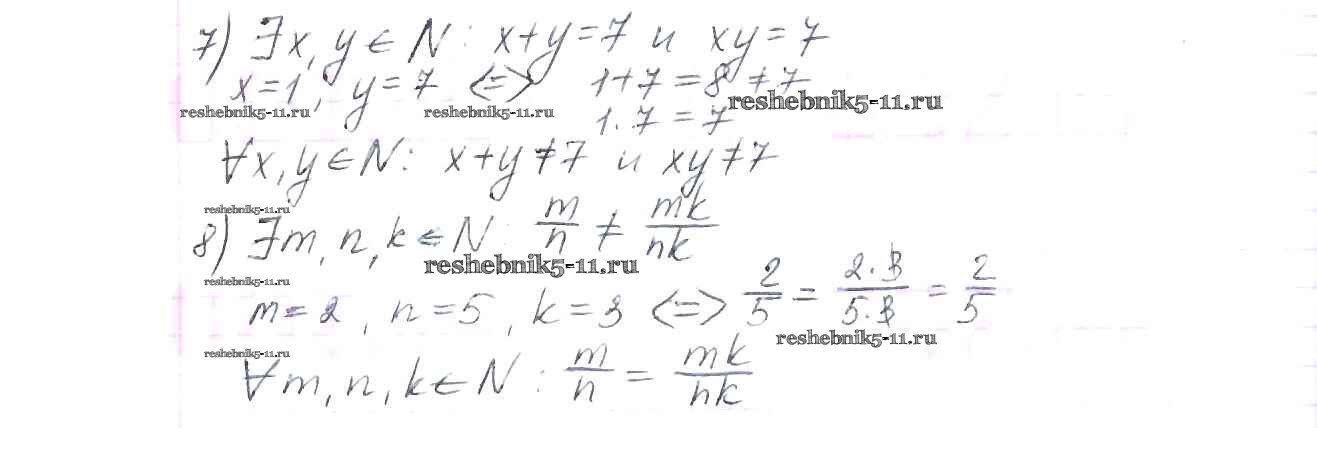 7) ∃x, y ∈ N : x+y=7 и xy=7
x=1, y=7 <=> 1+7=8≠7
reshebnik5-11.ru reshebnik5-11.ru reshebnik5-11.ru
1·7=7
∀x, y ∈ N: x+y≠7 и xy≠7
reshebnik5-11.ru
8) ∃m, n, k ∈ N : m/n ≠ mk/nk
reshebnik5-11.ru
reshebnik5-11.ru
m=2, n=5, k=3 <=> 2/5 = 2·3/5·3 = 2/5
reshebnik5-11.ru
reshebnik5-11.ru
∀m, n, k ∈ N : m/n = mk/nk